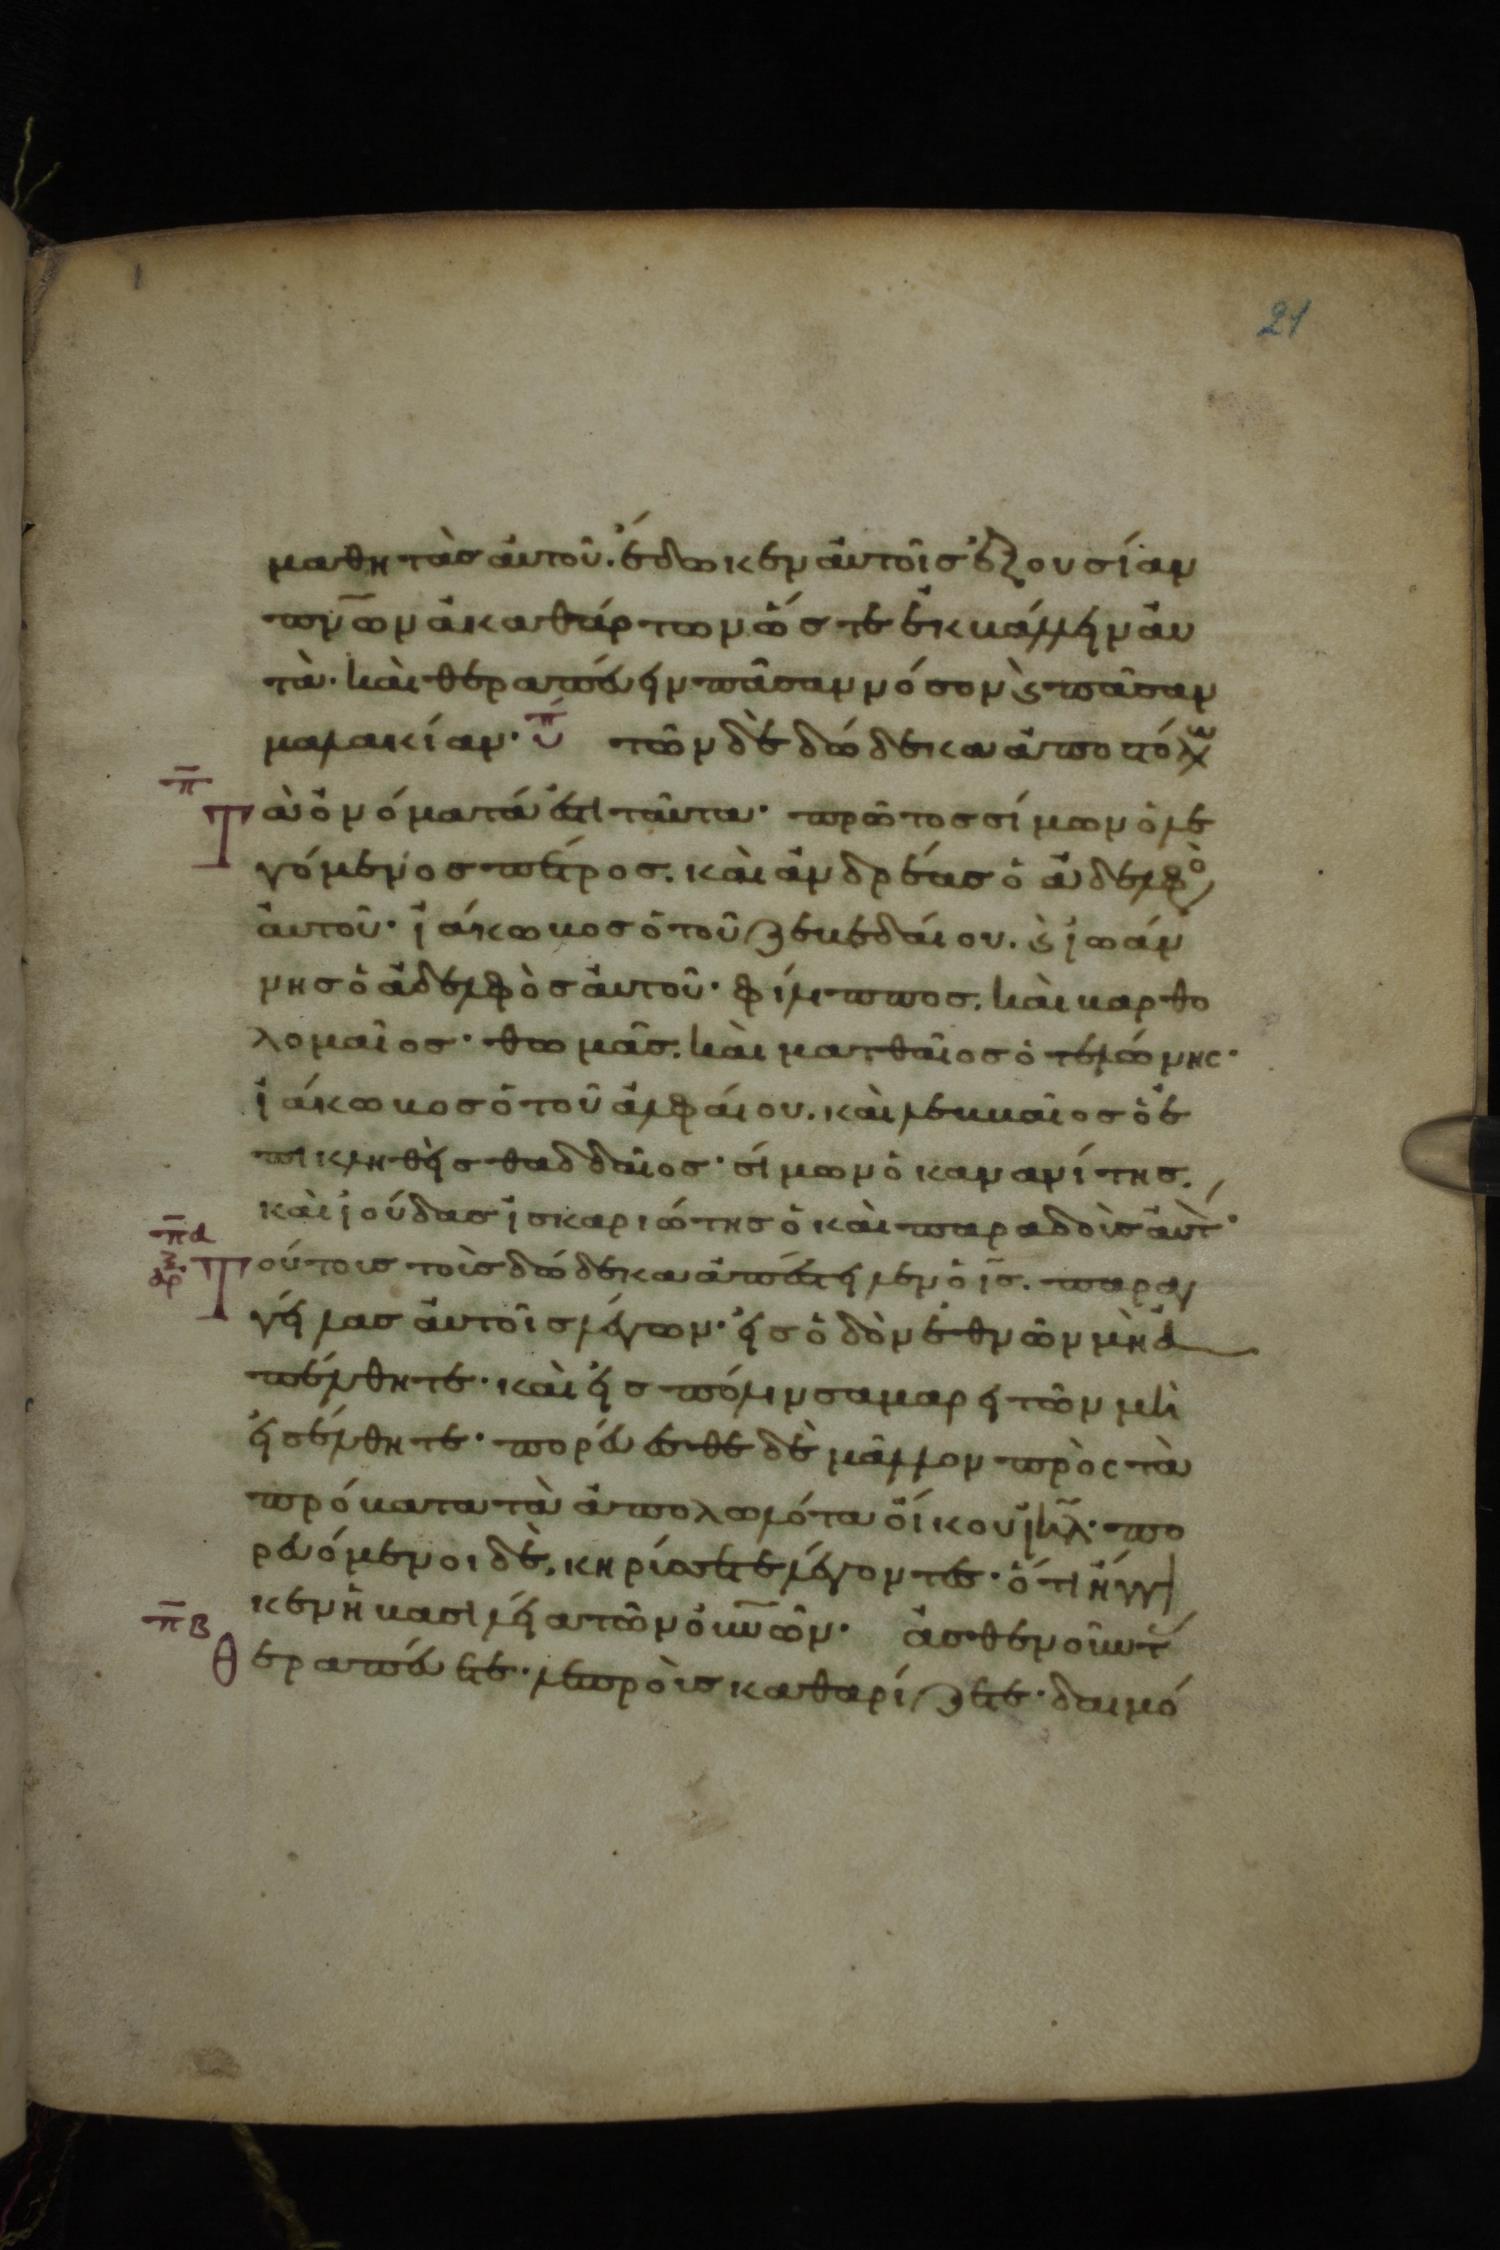 21
μαθητὰς ἀυτοῦ. ἔδωκεν ἀυτοῖς ἐξουσίαν
πν̅ων ἀκαθάρτων ὥστε ἐκβάλλειν ἀυ
τὰ· καὶ θεραπέυειν πᾶσαν νόσον ϗ πᾶσαν
μαλακίαν· τῶν δὲ δώδεκα ἀποστόλω
π̅
Τὰ ὀνόματά ἐστι ταῦτα· πρῶτος σίμων ὁ λε
γόμενος πέτρος. καὶ ἀνδρέας ὁ ἀδελφὸ
ἀυτοῦ· ἰάκωβος ὁ τοῦ ζεβεδάιου. ϗ ἰωάν
νης ὁ ἀδελφὸς ἀυτοῦ· φίλιππος. καὶ βαρθο
λομαῖος· θωμᾶς. καὶ ματθαῖος ὁ τελώνης·
ἰάκωβος ὁ τοῦ ἀλφάιου. καὶ λεββαῖος ὁ ἐ
πικληθεὶς θαδδαῖος· σίμων ὁ κανανίτης.
καὶ ἰούδας ἰσκαριώτης ὁ καὶ παραδοὺς ἀυτ·
π̅α
Τούτους τοὺς δώδεκα ἀπέστειλεν ὁ ι̅ς. παραγ
γείλας ἀυτοῖς λέγων· εἰς ὁδὸν ἐθνῶν μὴ ἀ
πέλθητε· καὶ εἰς πόλιν σαμαρειτῶν μὴ
εἰσέλθητε· πορέυεσθε δὲ μᾶλλον πρὸς τὰ
πρόβατα τὰ ἀπολωλότα οἴκου ιη̅λ· πο
ρευόμενοι δὲ, κηρύσσετε λέγοντες· ὅτι ἤγγι
κεν ἡ βασιλεία τῶν ὀυν̅ῶν· ἀσθενοῦντ
π̅β
Θεραπέυετε· λεπροὺς καθαρίζετε· δαιμό